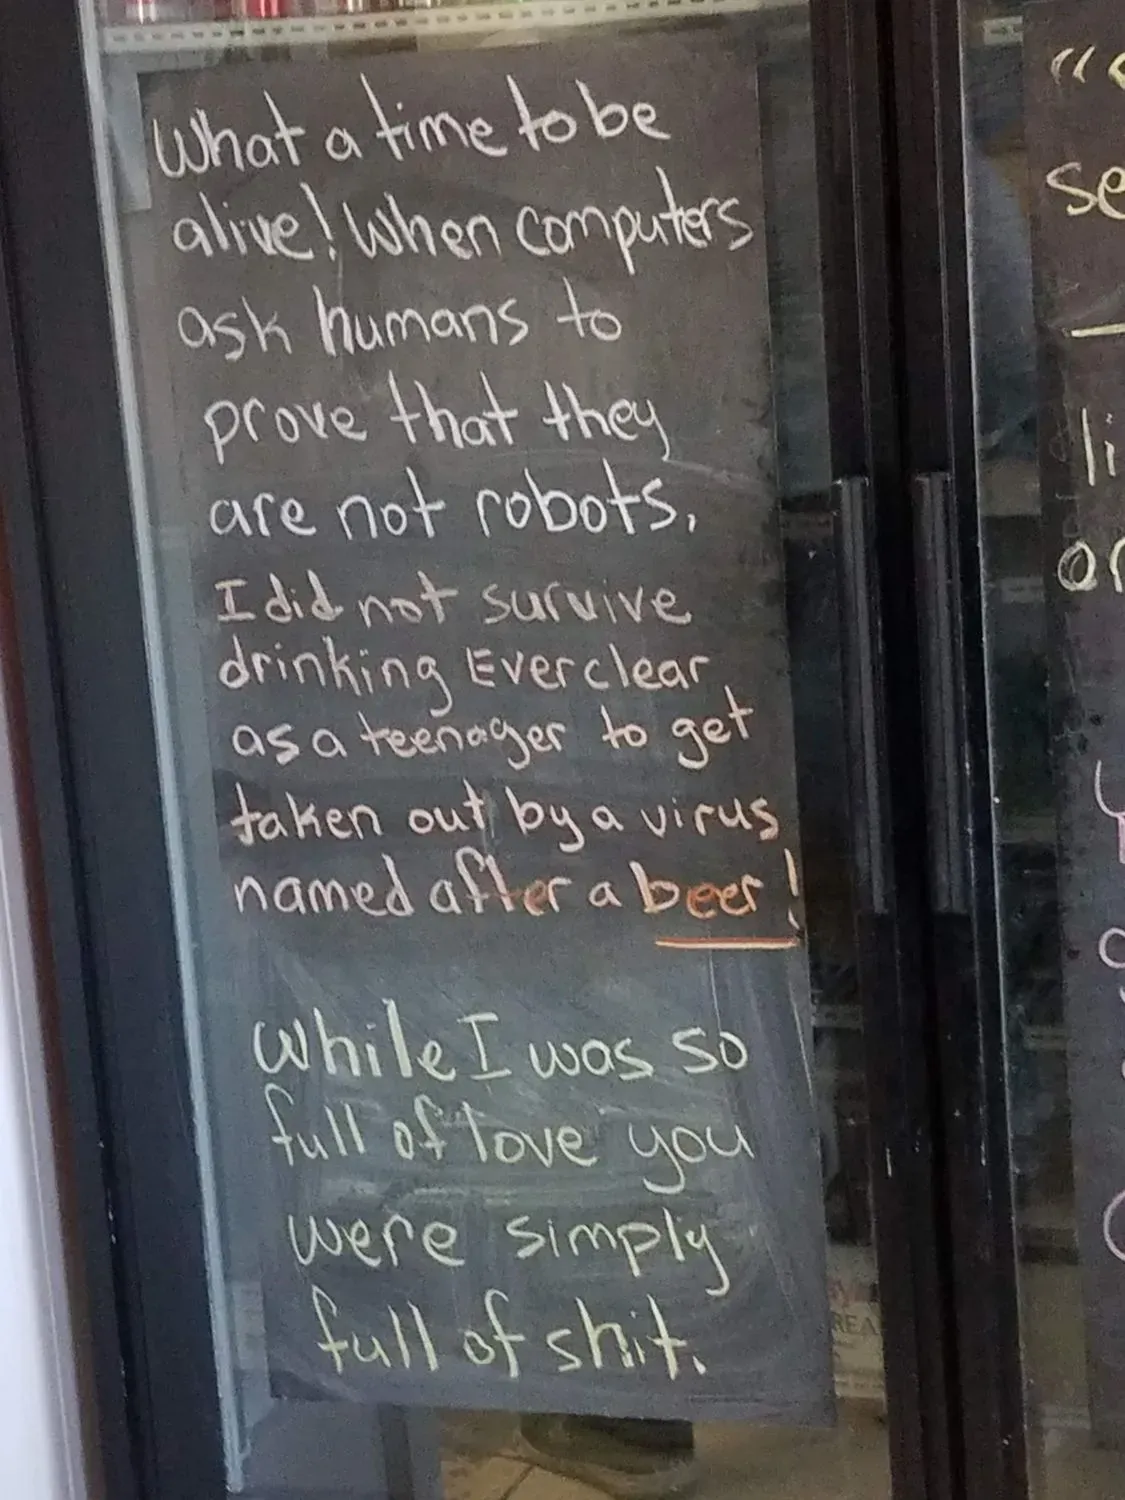 What a time to be
alive! When computers
ask humans to
prove that they
are not robots.
I did not survive
drinking Everclear
as a teenager to get
taken out by a virus
named after a beer!
While I was so
full of love you
were simply
full of shit.
"
se
li
or
REA